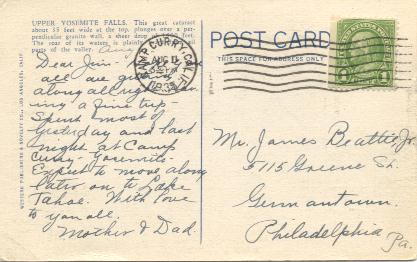 UPPER YOSEMITE FALLS. This great cataract
about 35 feet wide at the top, plunges over a per-
pendicular granite wall, a sheer drop of
The roar of its waters is plainly all
parts of the valley.
Dear Jim-
all are
along all
ing a fine trip-
Spent most of
yesterday and last
night at Camp
Curry- Yosemite-
Expect to move along
later on to Lake
Tahoe. With love
to you all.
Mother & Dad.
WESTERN PUBLISHING & NOVELTY CO., LOS ANGELES, CALIF.
CAMP CURRY, CALIF.
AUG 11
POST CARD
THIS SPACE FOR ADDRESS ONLY
Mr. James Beattie Jr.
5115 Greene St.
Germantown.
Philadelphia
Pa.